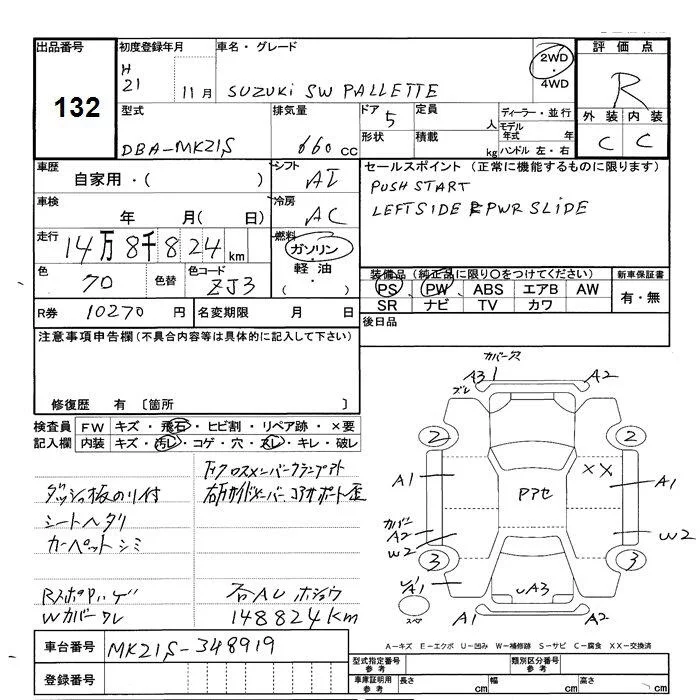 出品番号
132
初度登録年月
H
21 11月
車名・グレード
SUZUKI SW PALLETTE
2WD
・
4WD
評価点
R
外装 内装
C C
型式
DBA-MK21S
排気量
660 cc
ドア 5
形状
定員 人
積載 kg
ディーラー・並行
モデル年式 年
ハンドル 左・右
車歴
自家用・( )
シフト
AT
セールスポイント (正常に機能するものに限ります)
PUSH START
LEFT SIDE PWR SLIDE
車検
年 月( 日)
冷房
AC
走行
14万8千824 km
燃料
ガソリン
・
軽油
・
( )
色
70
色替
色コード
ZJ3
装備品 (純正品に限り○をつけてください)
PS PW ABS エアB AW
SR ナビ TV カワ
新車保証書
有・無
R券 10270 円
名変期限 月 日
後日品
注意事項申告欄 (不具合内容等は具体的に記入して下さい)
修復歴 有 〔箇所 〕
検査員
記入欄
FW キズ・飛石・ヒビ割・リペア跡・×要
内装 キズ・汚レ・コゲ・穴・スレ・キレ・破レ
ダッシュ板のり付
シートヘタリ
カーペットシミ
Wカバーワレ
148824km
カバー穴
A3 1 A2
ズレ
2 2
A1 ×× A1
Pアセ
カバー
A2
W2 W2
3 3
A1 A3
A1 A2
A-キズ E-エクボ U-凹み W-補修跡 S-サビ C-腐食 XX-交換済
車台番号 MK21S-348919
登録番号
型式指定番号
参考
類別区分番号
参考
車庫証明用
参考
長さ cm 幅 cm 高さ cm